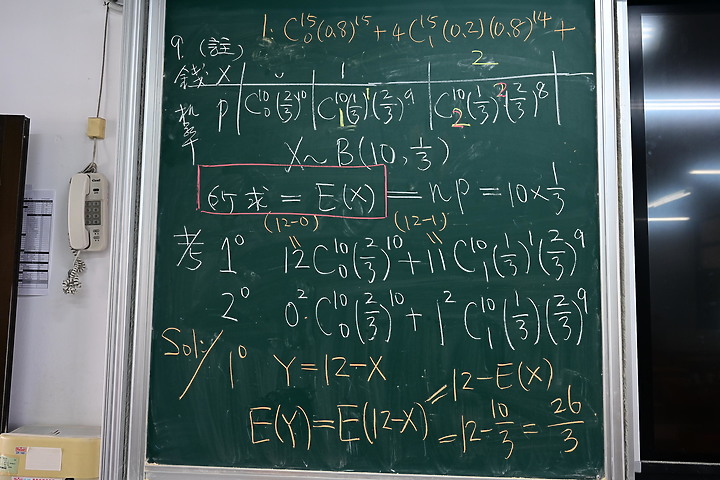 1. C₀¹⁵(0.8)¹⁵ + 4C₁¹⁵(0.2)(0.8)¹⁴ +
9. (註)
錢 X | 0 | 1 | 2
機率 P | C₀¹⁰(2/3)¹⁰ | C₁¹⁰(1/3)¹(2/3)⁹ | C₂¹⁰(1/3)²(2/3)⁸
X ~ B(10, 1/3)
所求 = E(X) = np = 10 × 1/3
(12-0) (12-1)
考 1° 12C₀¹⁰(2/3)¹⁰ + 11C₁¹⁰(1/3)¹(2/3)⁹
2° 0²·C₀¹⁰(2/3)¹⁰ + 1²C₁¹⁰(1/3)(2/3)⁹
Sol:/ 1° Y = 12 - X
E(Y) = E(12-X) = 12 - E(X)
= 12 - 10/3 = 26/3